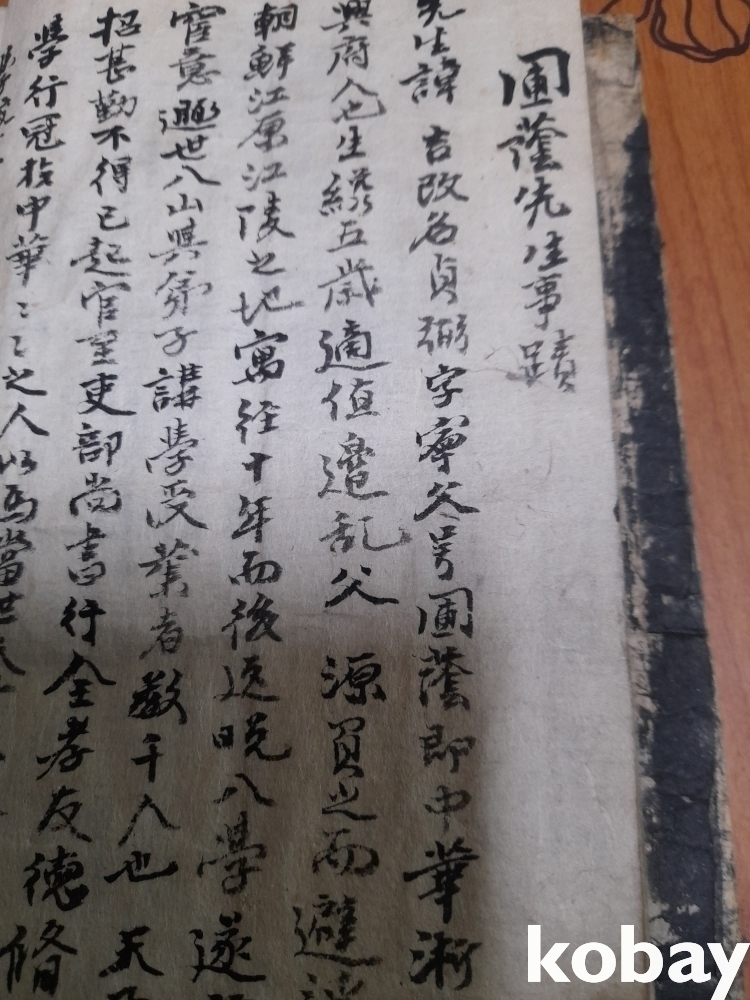 圃蔭先生事蹟
先生諱 吉改名貞弼字寧父号圃蔭即中華淅
興府人也生纔五歳適值邉乱父 源負之而避
朝鮮江原江陵之地寓径十年而後逃晩入學遂
宦意遯世入山與弟子講學受業者数千人也 天
招甚勤不得已起官至吏部尚書行全孝友德脩
學行冠於中華〻〻之人以為當世
kobay